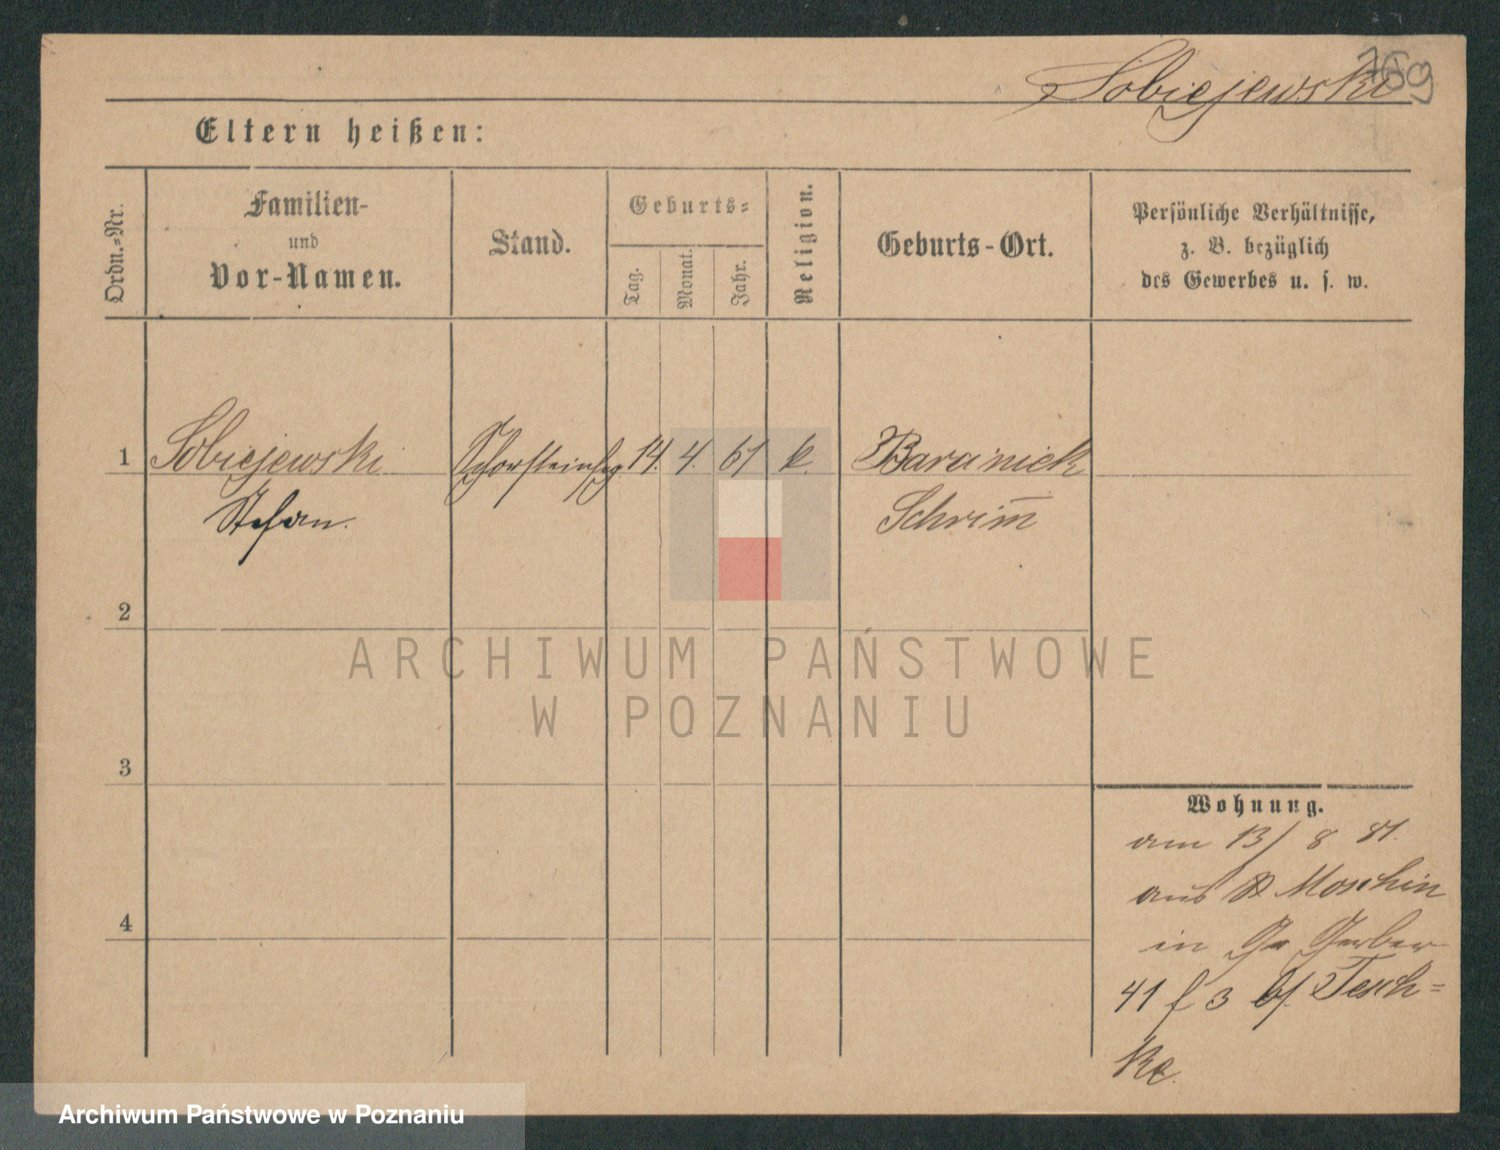 769
Sobiejewski
Eltern heißen:
Ordn.=Nr.
Familien-
und
Vor-Namen.
Stand.
Geburts=
Tag.
Monat.
Jahr.
Religion.
Geburts-Ort.
Persönliche Verhältnisse,
z. B. bezüglich
des Gewerbes u. s. w.
1 Sobiejewski Schornsteinfg. 14. 4. 61 k.
Stefan. Schrim̅
2
3
4
Wohnung.
am 13/8 81.
aus Moschin
in Gr Gerber
41 f 3 b/. Tesch=
ke.
ARCHIWUM PAŃSTWOWE
W POZNANIU
Archiwum Państwowe w Poznaniu